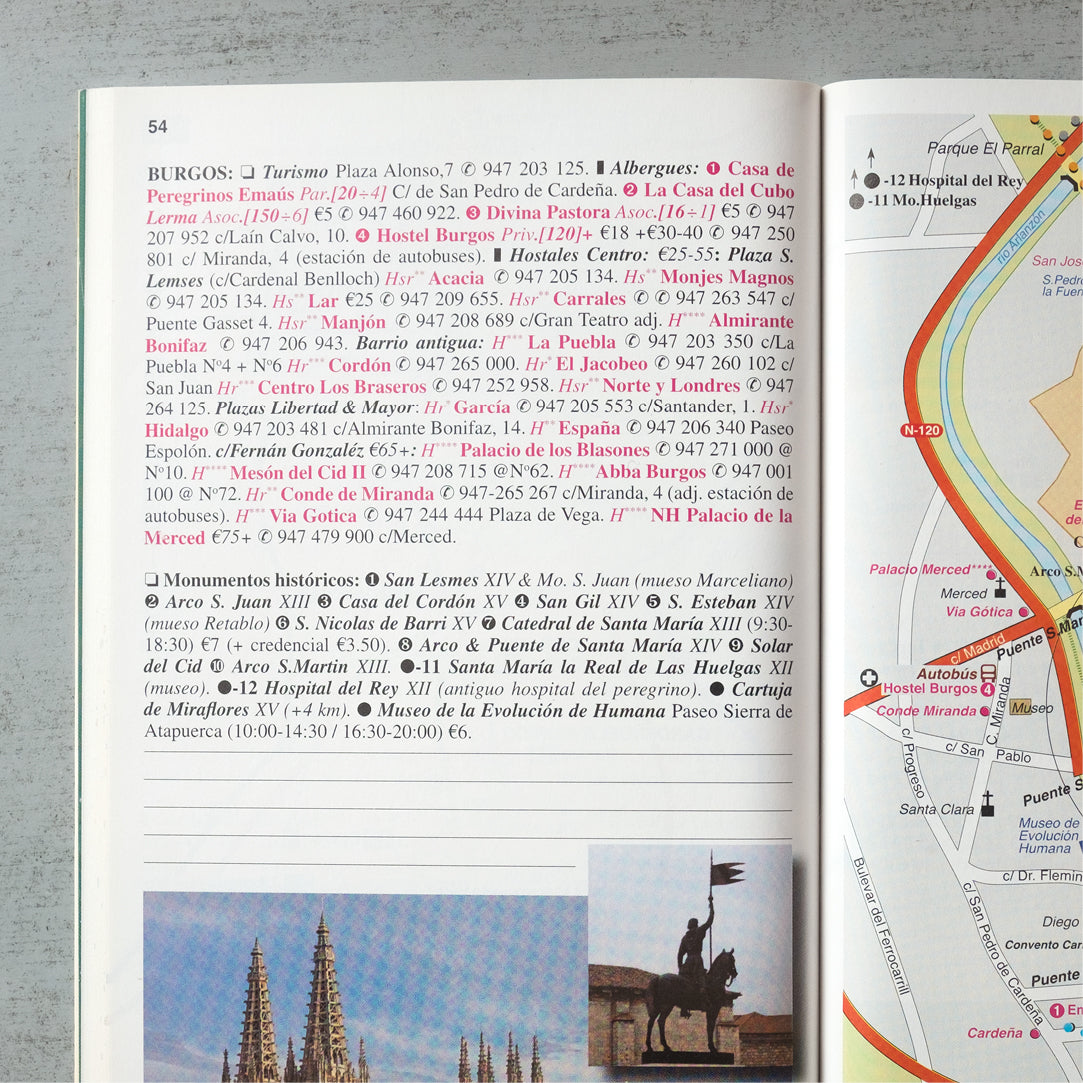 54
BURGOS: ❏ Turismo Plaza Alonso,7 ✆ 947 203 125. ▮ Albergues: ❶ Casa de
Peregrinos Emaús Par.[20÷4] C/ de San Pedro de Cardeña. ❷ La Casa del Cubo
Lerma Asoc.[150÷6] €5 ✆ 947 460 922. ❸ Divina Pastora Asoc.[16÷1] €5 ✆ 947
207 952 c/Laín Calvo, 10. ❹ Hostel Burgos Priv.[120]+ €18 +€30-40 ✆ 947 250
801 c/ Miranda, 4 (estación de autobuses). ▮ Hostales Centro: €25-55: Plaza S.
Lemses (c/Cardenal Benlloch) Hsr** Acacia ✆ 947 205 134. Hs** Monjes Magnos
✆ 947 205 134. Hs** Lar €25 ✆ 947 209 655. Hsr** Carrales ✆ ✆ 947 263 547 c/
Puente Gasset 4. Hsr** Manjón ✆ 947 208 689 c/Gran Teatro adj. H**** Almirante
Bonifaz ✆ 947 206 943. Barrio antigua: H*** La Puebla ✆ 947 203 350 c/La
Puebla Nº4 + Nº6 Hr*** Cordón ✆ 947 265 000. Hr* El Jacobeo ✆ 947 260 102 c/
San Juan Hr*** Centro Los Braseros ✆ 947 252 958. Hsr** Norte y Londres ✆ 947
264 125. Plazas Libertad & Mayor: Hr* García ✆ 947 205 553 c/Santander, 1. Hsr*
Hidalgo ✆ 947 203 481 c/Almirante Bonifaz, 14. H** España ✆ 947 206 340 Paseo
Espolón. c/Fernán Gonzaléz €65+: H**** Palacio de los Blasones ✆ 947 271 000 @
Nº10. H**** Mesón del Cid II ✆ 947 208 715 @Nº62. H**** Abba Burgos ✆ 947 001
100 @ Nº72. Hr** Conde de Miranda ✆ 947-265 267 c/Miranda, 4 (adj. estación de
autobuses). H*** Via Gotica ✆ 947 244 444 Plaza de Vega. H**** NH Palacio de la
Merced €75+ ✆ 947 479 900 c/Merced.
❏ Monumentos históricos: ❶ San Lesmes XIV & Mo. S. Juan (mueso Marceliano)
❷ Arco S. Juan XIII ❸ Casa del Cordón XV ❹ San Gil XIV ❺ S. Esteban XIV
(mueso Retablo) ❻ S. Nicolas de Barri XV ❼ Catedral de Santa María XIII (9:30-
18:30) €7 (+ credencial €3.50). ❽ Arco & Puente de Santa María XIV ❾ Solar
del Cid ❿ Arco S.Martin XIII. ●-11 Santa María la Real de Las Huelgas XII
(museo). ●-12 Hospital del Rey XII (antiguo hospital del peregrino). ● Cartuja
de Miraflores XV (+4 km). ● Museo de la Evolución de Humana Paseo Sierra de
Atapuerca (10:00-14:30 / 16:30-20:00) €6.
Parque El Parral
-12 Hospital del Rey
-11 Mo.Huelgas
río Arlanzón
San Jose
S.Pedro
la Fuen
N-120
Palacio Merced****
Arco S.M
Merced
Via Gótica
Puente S.Mar
c/ Madrid
Autobús
Hostel Burgos 4
Conde Miranda
Museo
C. Miranda
c/ San Pablo
c/ Progreso
Puente S
Santa Clara
Museo de
Evolución
Humana
c/ Dr. Flemin
Bulevar del Ferrocarrill
c/ San Pedro de Cardeña
Diego
Convento Car
Puente
1 En
Cardeña